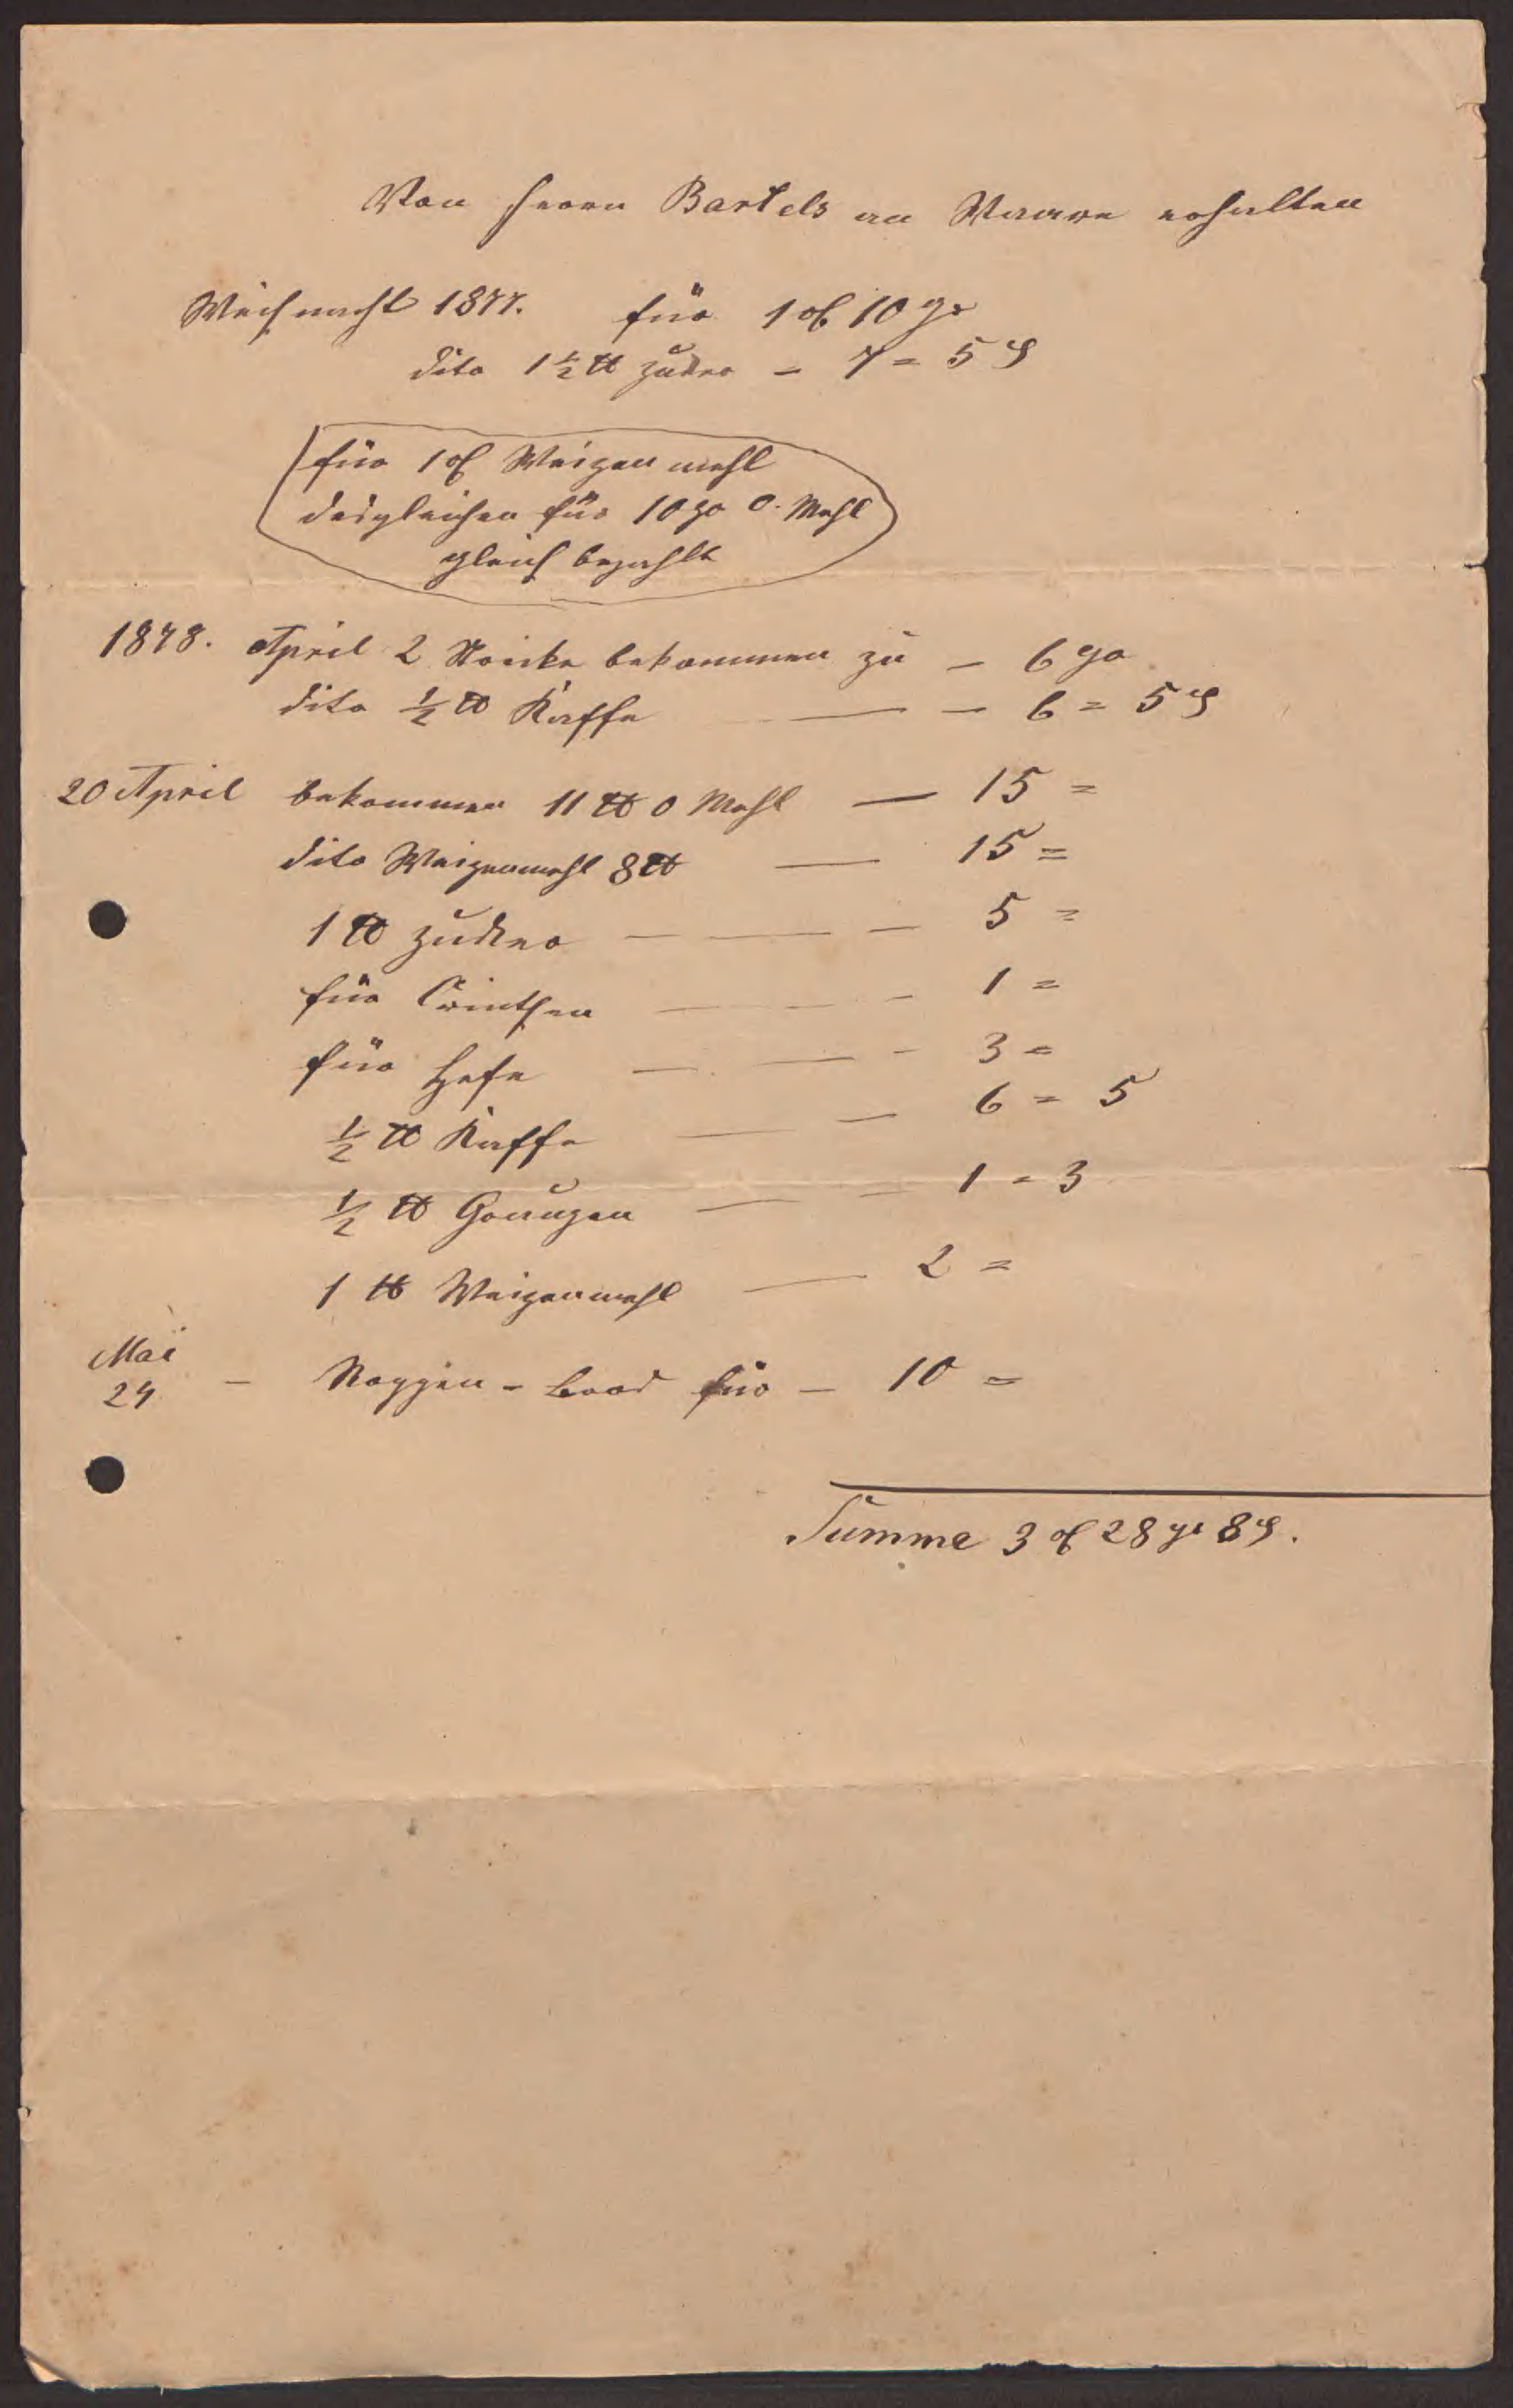 Von Herrn Bartels an Waare erhalten
Weihnacht 1877. für 1 ₰ 10 gr
dito 1½ ℔ Zucker – 7 = 5 ₰
für 1 Weizen mehl
desgleichen für 10 gr 0. Mehl
gleich bezahlt
1878. April 2 bekommen zu – 6 gr
dito ½ ℔ Kaffe — – 6 = 5 ₰
20 April bekommen 11 ℔ 0 Mehl — 15 =
dito Weizenmehl 8 ℔ — 15 =
1 ℔ Zucker – — – 5 =
für Corinthen — – – 1 =
für Hefe — — – 3 =
½ ℔ Kaffe — – 6 = 5
½ ℔ Graupen — – 1 = 3
1 ℔ Weizenmehl — 2 =
Mai
24 – Roggen - brod für – 10 =
Summe 3 28 gr 8 ₰.